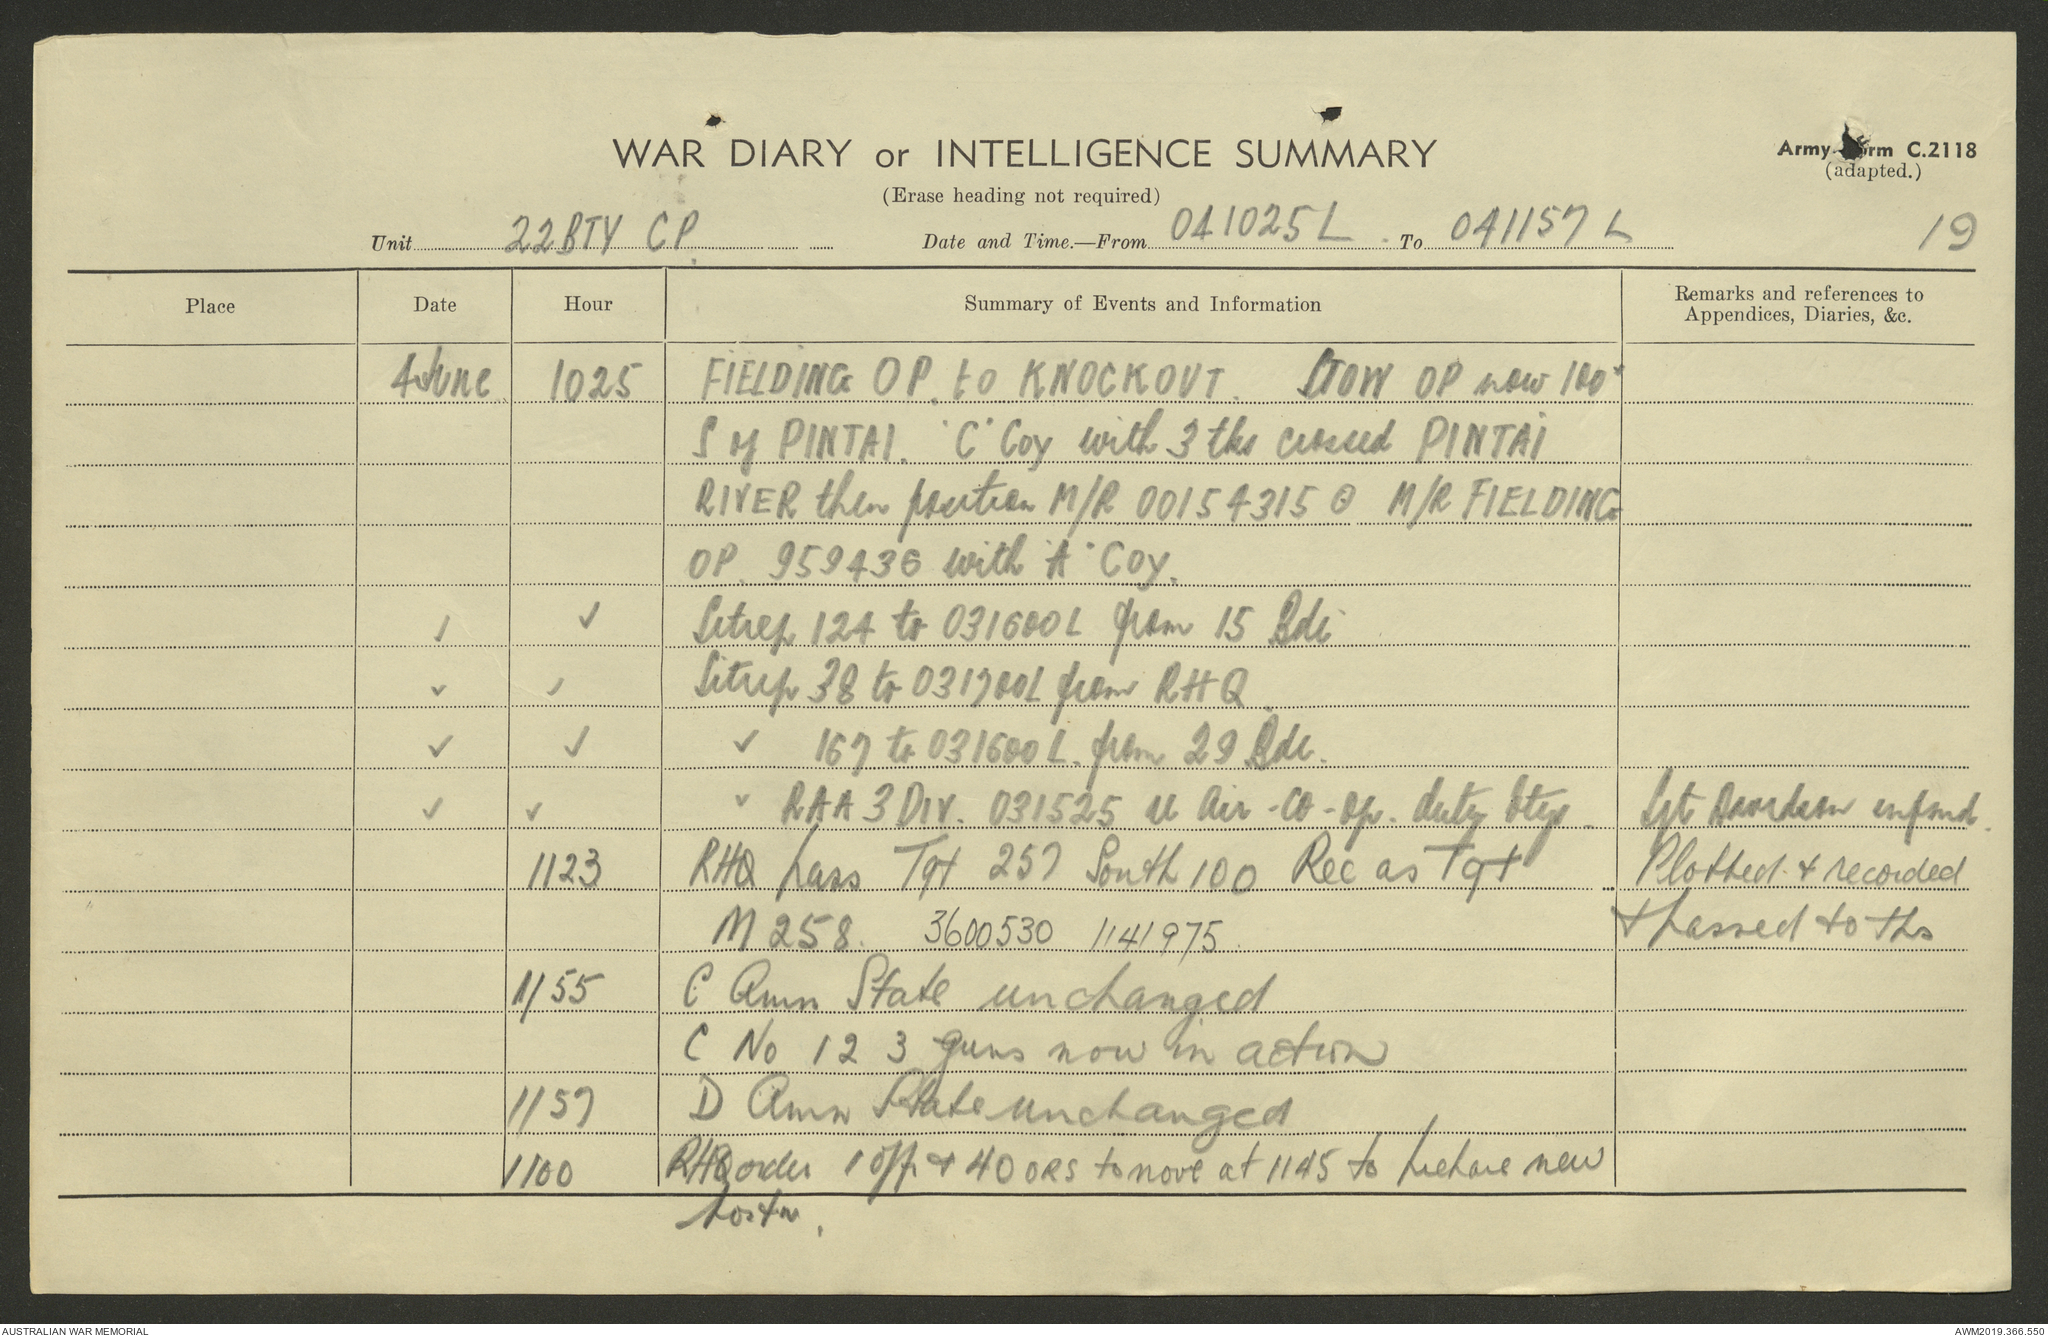 WAR DIARY or INTELLIGENCE SUMMARY
Army Form C.2118
(adapted.)
(Erase heading not required)
Unit 22 BTY CP. Date and Time.—From 041025L To 041157L
19
Place Date Hour Summary of Events and Information Remarks and references to Appendices, Diaries, &c.
4 June 1025 FIELDING OP. to KNOCKOUT. STOW OP now 100x
S of PINTAI. 'C' Coy with 3 tks crossed PINTAI
RIVER then position M/R 00154315 M/R FIELDING
OP. 959436 with 'A' Coy.
✓ ✓ Sitrep 124 to 031600L from 15 Bde
✓ ✓ Sitrep 38 to 031700L from RHQ.
✓ ✓ ✓ 167 to 031600L. from 29 Bde.
✓ ✓ ✓ RAA 3 DIV. 031525 Air-Co-op. duty btys. Sgt Davidson infmd.
1123 RHQ pass Tgt 257 South 100 Rec as Tgt Plotted & recorded
M 258. 3600530 1141975. & passed to tps
1155 C Amn State unchanged
C No 1 2 3 guns now in action
1157 D Amn State unchanged
1100 RHQ order 1 off & 40 ORS to move at 1145 to prepare new
postn.
AUSTRALIAN WAR MEMORIAL
AWM2019.366.550